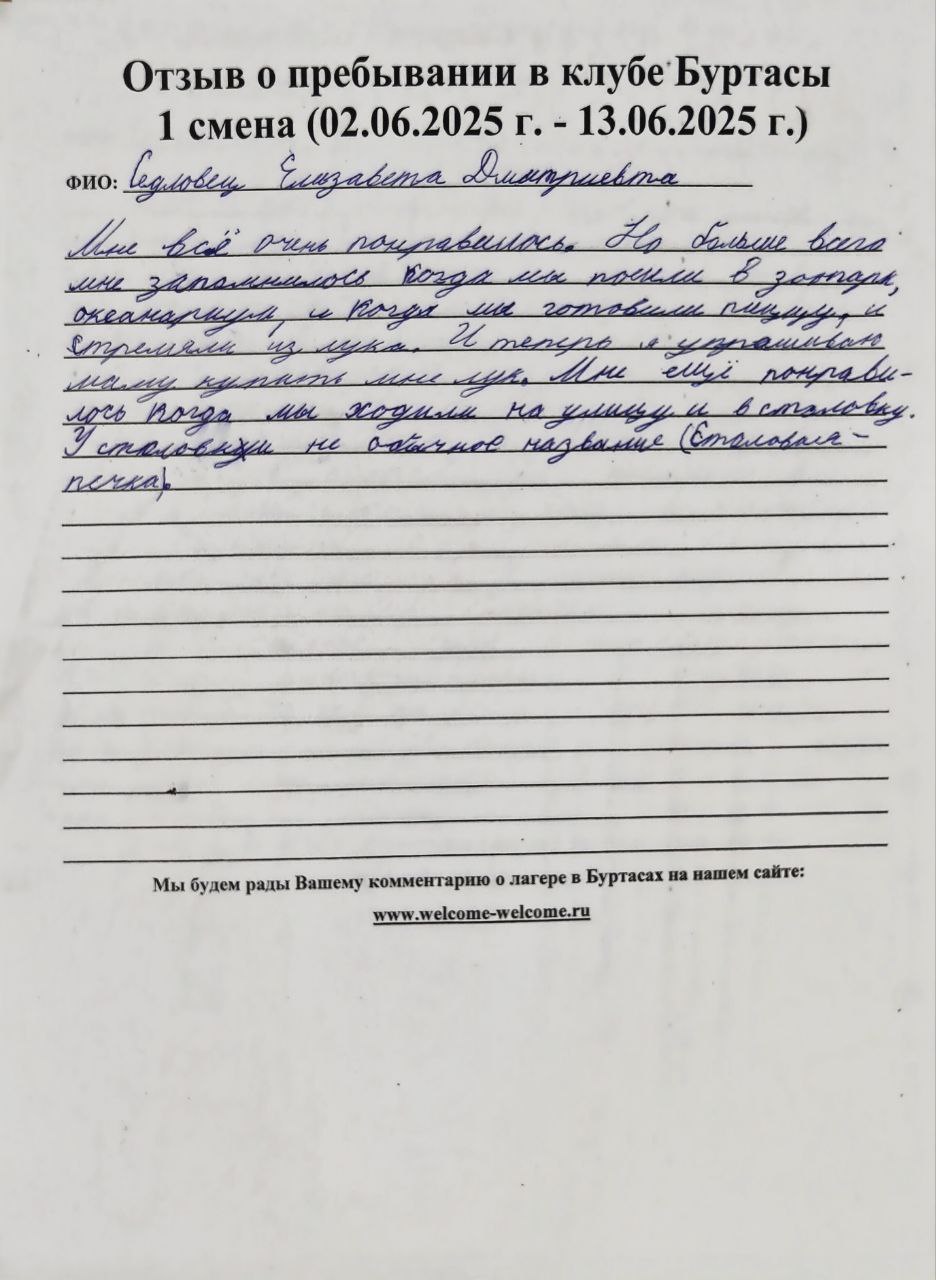 Отзыв о пребывании в клубе Буртасы
1 смена (02.06.2025 г. - 13.06.2025 г.)
ФИО: Седловец Елизавета Дмитриевта
Мне всё очень понравилось. Но больше всего
мне запомнилось когда мы поехали в зоопарк,
океанариум, и когда мы готовили пиццу, и
стремяли из лука. И теперь я упрашиваю
маму купить мне лук. Мне ещё понрави-
лось когда мы ходили на улицу и в столовку.
У столовки не обычное название (Столовая-
печка).
Мы будем рады Вашему комментарию о лагере в Буртасах на нашем сайте:
www.welcome-welcome.ru